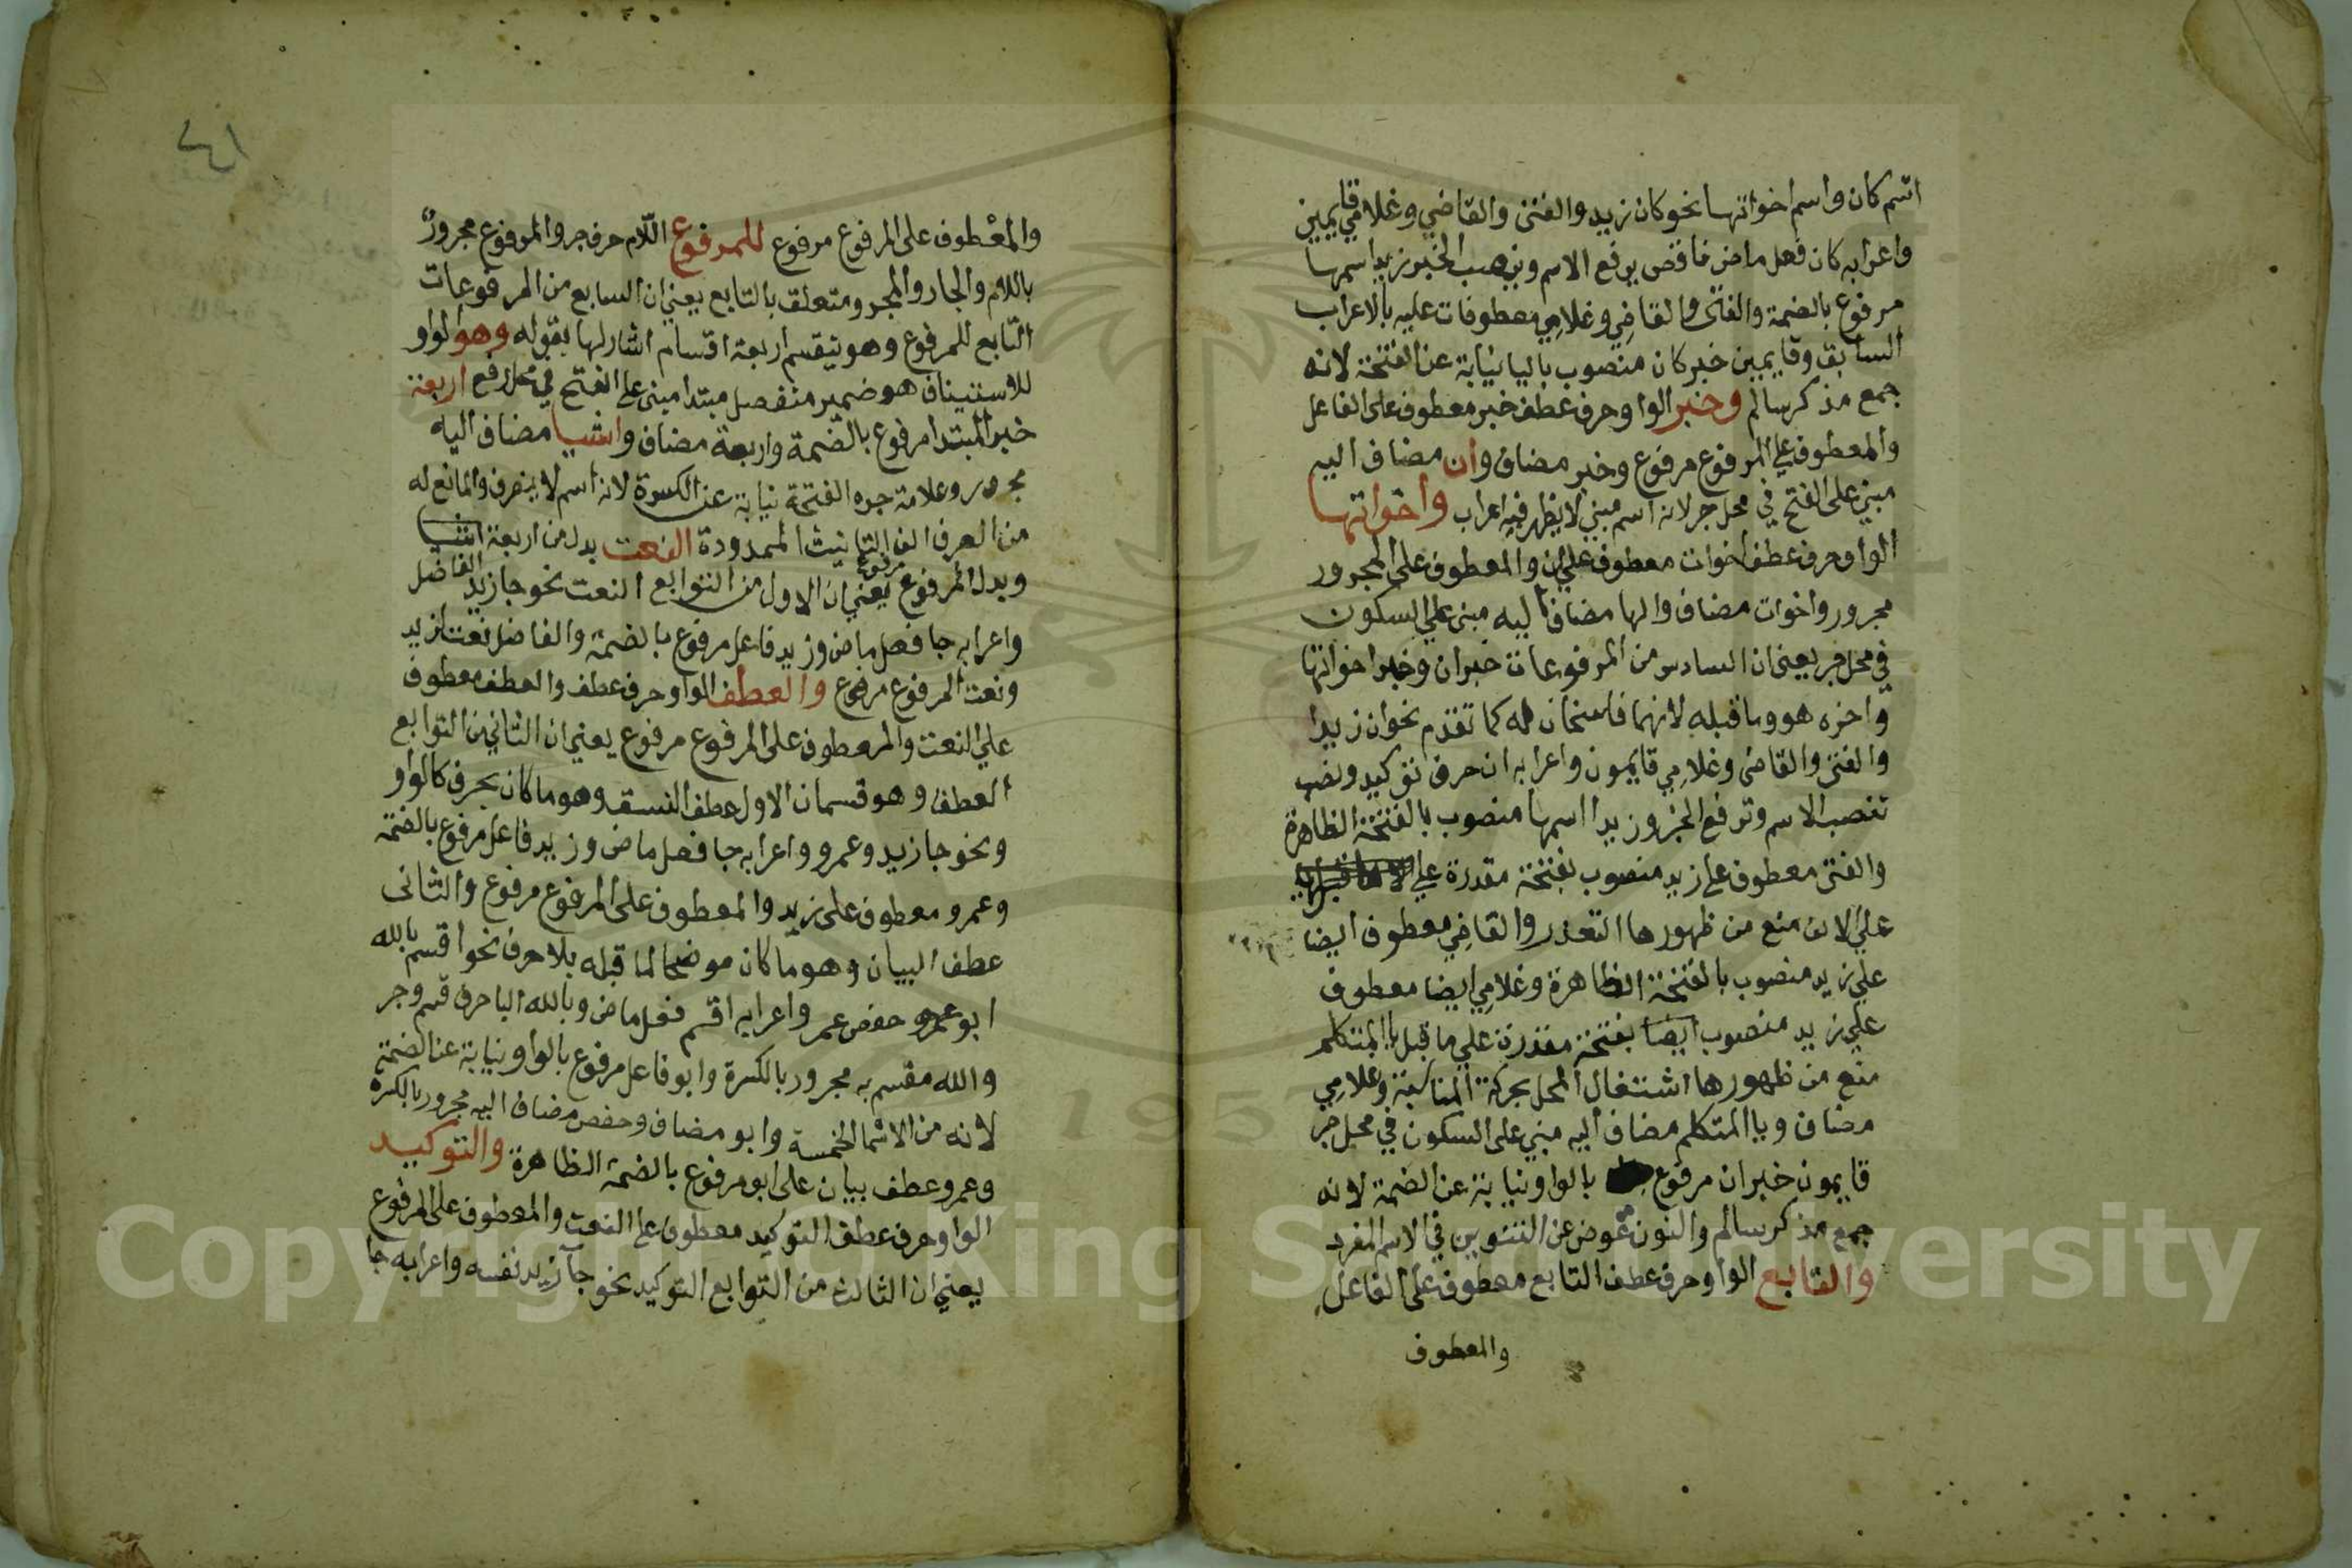 اسم كان واسم اخواتها نحو كان زيد والفتى والقاضي وغلامي قايمين
واعرابه كان فعل ماض ناقص يرفع الاسم وينصب الخبر زيد اسمها
مرفوع بالضمة والفتى والقاضي وغلامي معطوفات عليه بالاعراب
السابق وقايمين خبر كان منصوب باليا نيابة عن الفتحة لانه
جمع مذكر سالم وخبر الواو حرف عطف خبر معطوف على الفاعل
والمعطوف علي المرفوع مرفوع وخبر مضاف وان مضاف اليه
مبني على الفتح في محل جر لانه اسم مبني لا يظهر فيه اعراب واخواتها
الواو حرف عطف اخوات معطوف علي ان والمعطوف على المجرور
مجرور واخوات مضاف والها مضاف اليه مبني علي السكون
في محل جر يعني ان السادس من المرفوعات خبر ان وخبر اخواتها
واخره هو وما قبله لانهما ناسخان له كما تقدم نحو ان زيدا
والفتى والقاضي وغلامي قايمون واعرابه ان حرف توكيد ونصب
تنصب الاسم وترفع الخبر وزيدا اسمها منصوب بالفتحة الظاهرة
والفتى معطوف على زيد منصوب بفتحة مقدرة علي
علي الالف منع من ظهورها التعذر والقاضي معطوف ايضا
علي زيد منصوب بالفتحة الظاهرة وغلامي ايضا معطوف
علي زيد منصوب ايضا بفتحة مقدرة علي ما قبل يا المتكلم
منع من ظهورها اشتغال المحل بحركة المناسبة وغلامي
مضاف ويا المتكلم مضاف اليه مبني على السكون في محل جر
قايمون خبر ان مرفوع بالواو نيابة عن الضمة لانه
جمع مذكر سالم والنون عوض عن التنوين في الاسم المفرد
والتابع الواو حرف عطف التابع معطوف على الفاعل
والمعطوف
٤١
والمعطوف على المرفوع مرفوع للمرفوع اللام حرف جر والمرفوع مجرور
باللام والجار والمجرور متعلق بالتابع يعني ان السابع من المرفوعات
التابع للمرفوع وهو ينقسم اربعة اقسام اشار لها بقوله وهو الواو
للاستيناف هو ضمير منفصل مبتدا مبني على الفتح في محل رفع اربعة
خبر المبتدا مرفوع بالضمة واربعة مضاف واشيا مضاف اليه
مجرور وعلامة جره الفتحة نيابة عن الكسرة لانه اسم لا ينصرف والمانع له
من الصرف الف التانيث الممدودة النعت بدل من اربعة اشيا
وبدل المرفوع مرفوع يعني ان الاول من التوابع النعت نحو جا زيد الفاضل
واعرابه جا فعل ماض وزيد فاعل مرفوع بالضمة والفاضل نعت لزيد
ونعت المرفوع مرفوع والعطف الواو حرف عطف والعطف معطوف
علي النعت والمعطوف على المرفوع مرفوع يعني ان الثاني من التوابع
العطف وهو قسمان الاول عطف النسق وهو ما كان بحرف كالواو
ونحو جا زيد وعمرو واعرابه جا فعل ماض وزيد فاعل مرفوع بالضمة
وعمرو معطوف على زيد والمعطوف على المرفوع مرفوع والثاني
عطف البيان وهو ما كان موضحا لما قبله بلا حرف نحو اقسم بالله
ابو حفص عمر واعرابه اقسم فعل ماض وبالله البا حرف قسم وجر
والله مقسم به مجرور بالكسرة وابو فاعل مرفوع بالواو نيابة عن الضمة
لانه من الاسما الخمسة وابو مضاف وحفص مضاف اليه مجرور بالكسرة
وعمرو عطف بيان على ابو مرفوع بالضمة الظاهرة والتوكيد
الواو حرف عطف التوكيد معطوف على النعت والمعطوف على المرفوع
يعني ان الثالث من التوابع التوكيد نحو جا زيد نفسه واعرابه جا